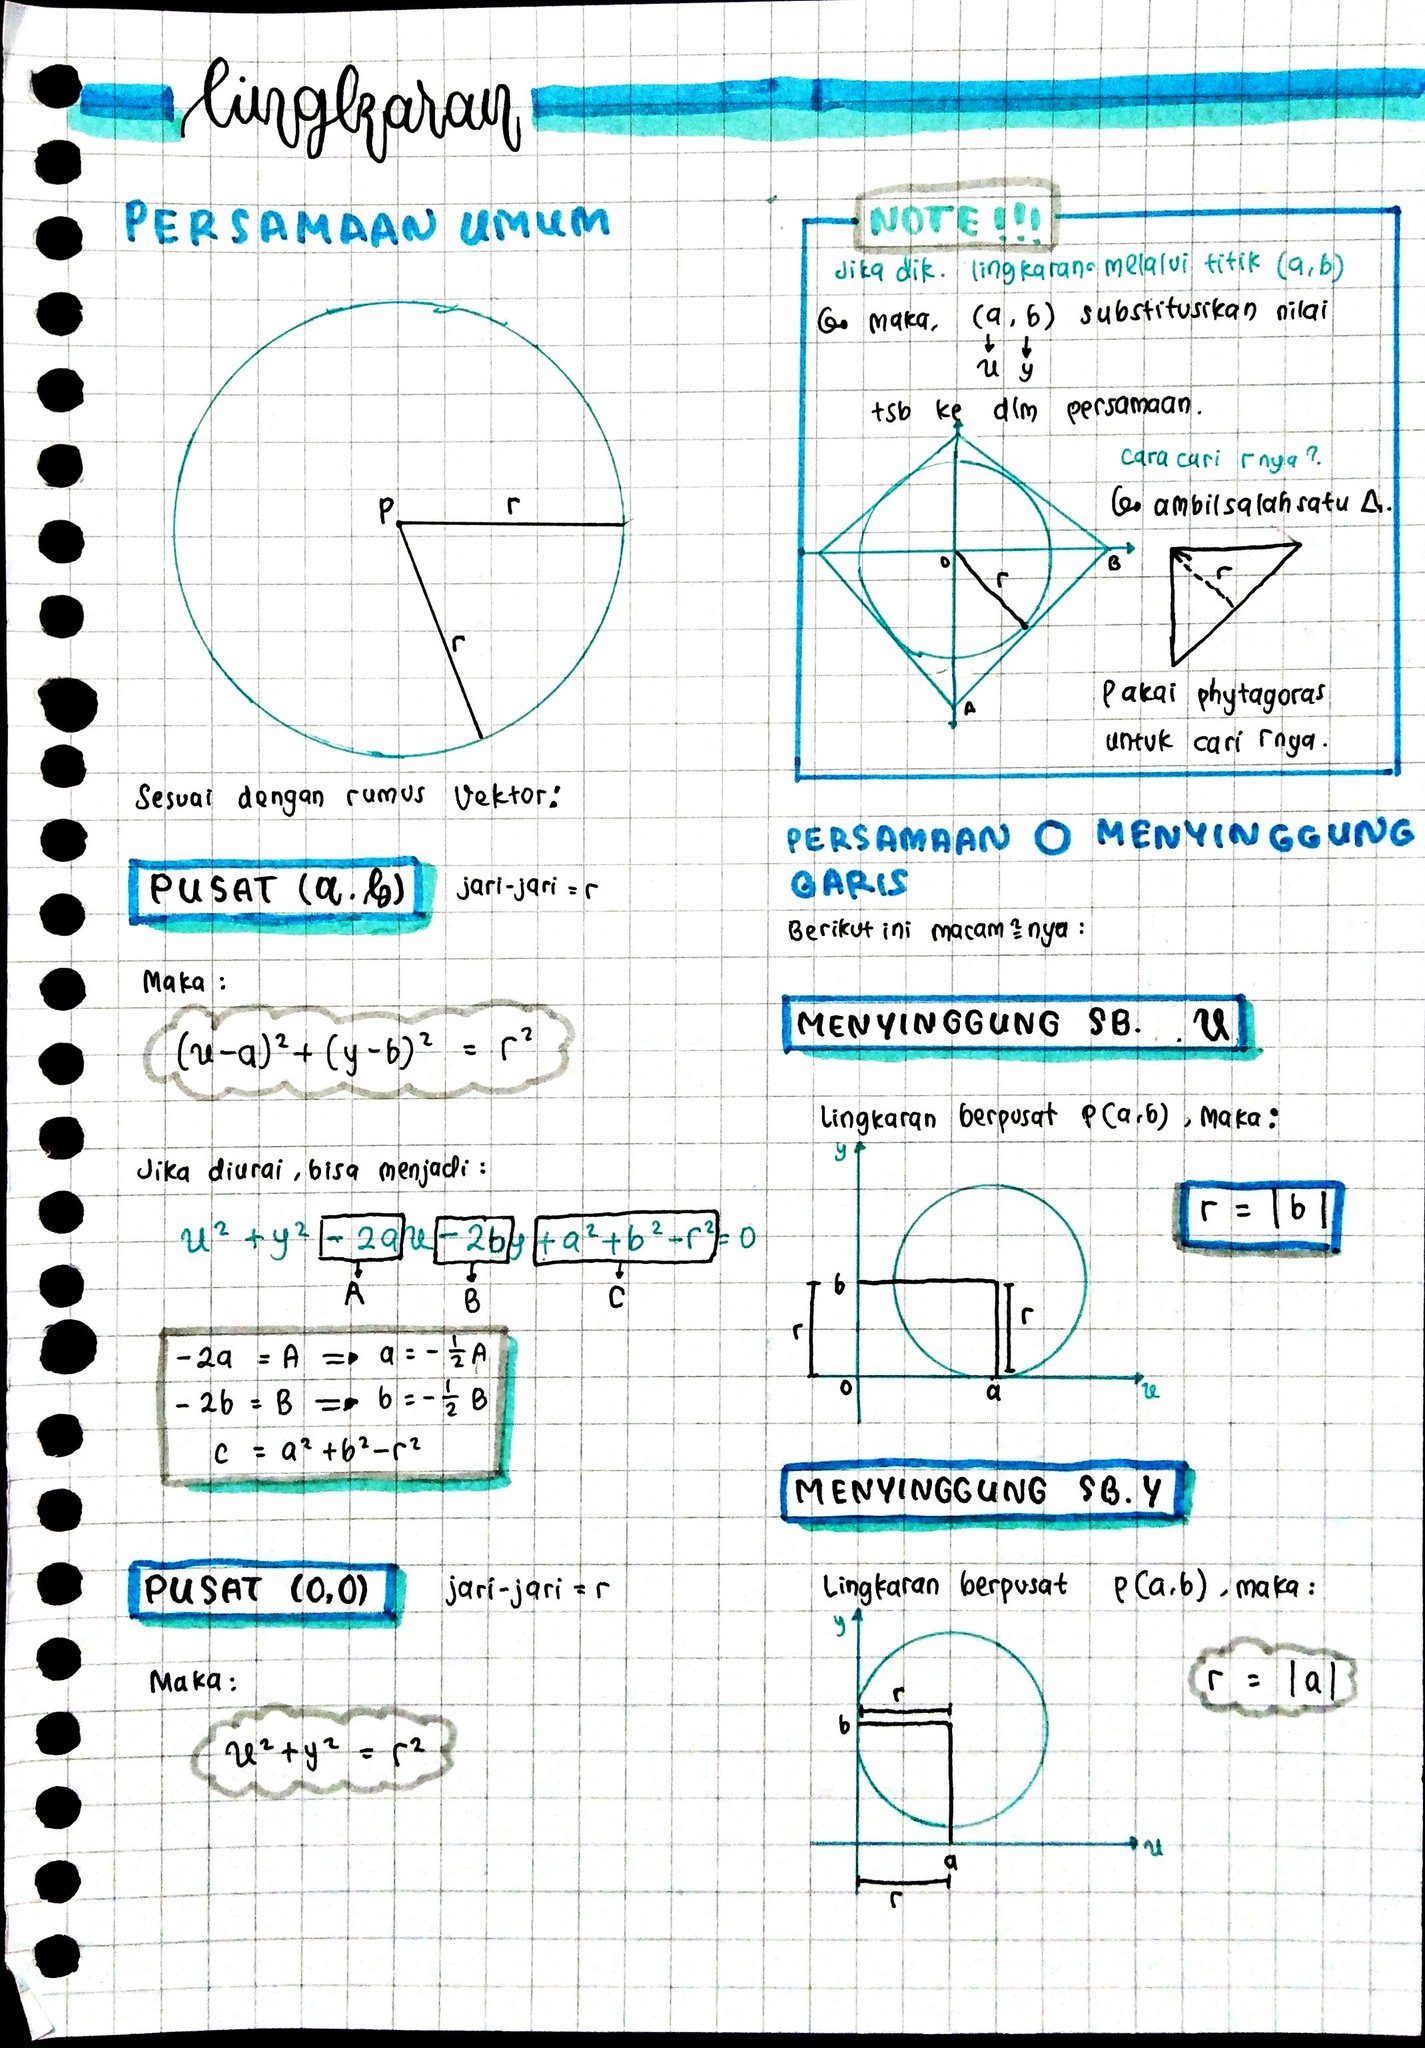 lingkaran
PERSAMAAN UMUM
P
r
r
Sesuai dengan rumus Vektor:
PUSAT (a.b) jari-jari = r
Maka :
(x-a)² + (y-b)² = r²
Jika diurai, bisa menjadi :
x² + y² - 2ax - 2by + a² + b² - r² = 0
A B C
-2a = A => a = -½ A
-2b = B => b = -½ B
C = a² + b² - r²
PUSAT (0,0) jari-jari = r
Maka :
x² + y² = r²
NOTE !!!
Jika dik. lingkaran melalui titik (a,b)
maka, (a, b) substitusikan nilai
↓ ↓
x y
tsb ke dlm persamaan.
cara cari rnya?
ambil salah satu Δ.
O
r
B
A
r
Pakai phytagoras
untuk cari rnya.
PERSAMAAN O MENYINGGUNG
GARIS
Berikut ini macam²nya :
MENYINGGUNG SB. x
Lingkaran berpusat P(a,b), Maka :
r = |b|
y
b
r
r
0
a
x
MENYINGGUNG SB. Y
Lingkaran berpusat P(a,b), maka :
r = |a|
y
r
b
a
x
r